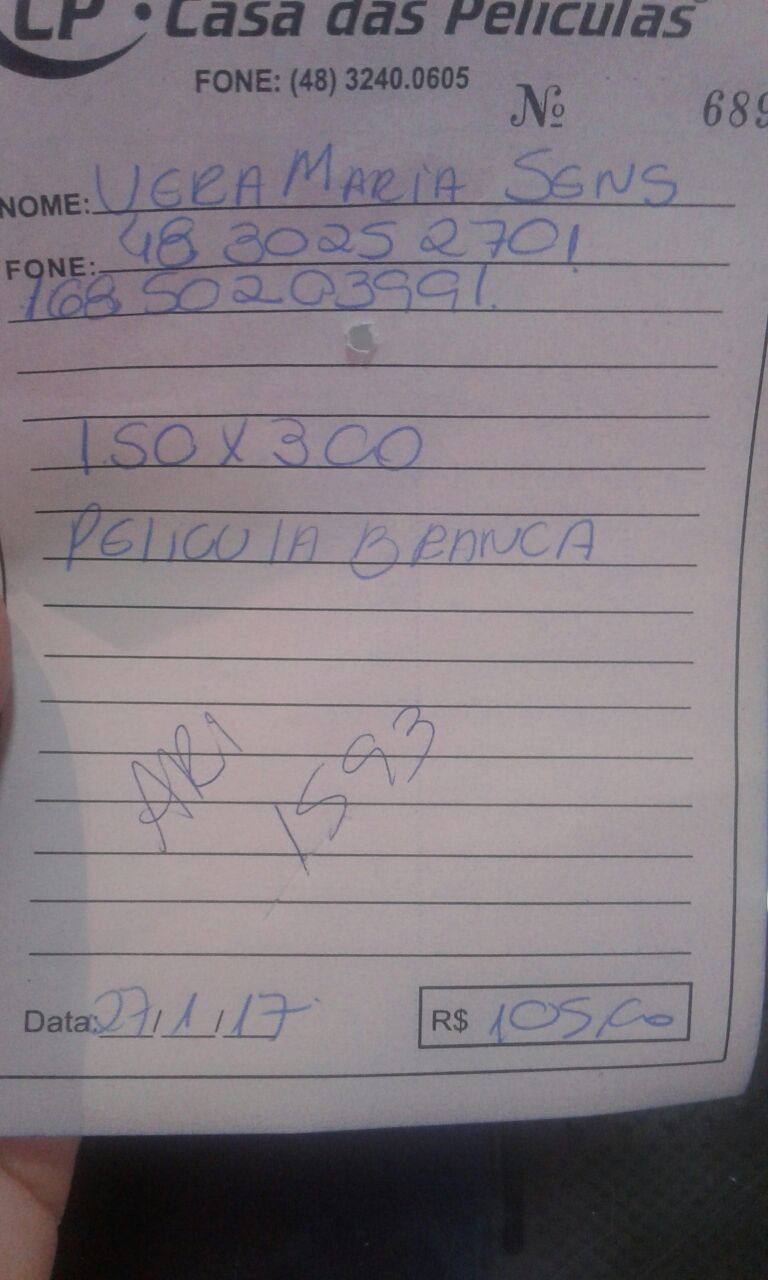 CP • Casa das Películas
FONE: (48) 3240.0605
Nº 689
NOME: VERA MARIA SENS
FONE: 48 3025 2701
168 502039991
1.50 X 3 00
PELICULA BRANCA
ARI 1593
Data: 27/1/17 R$ 105,00